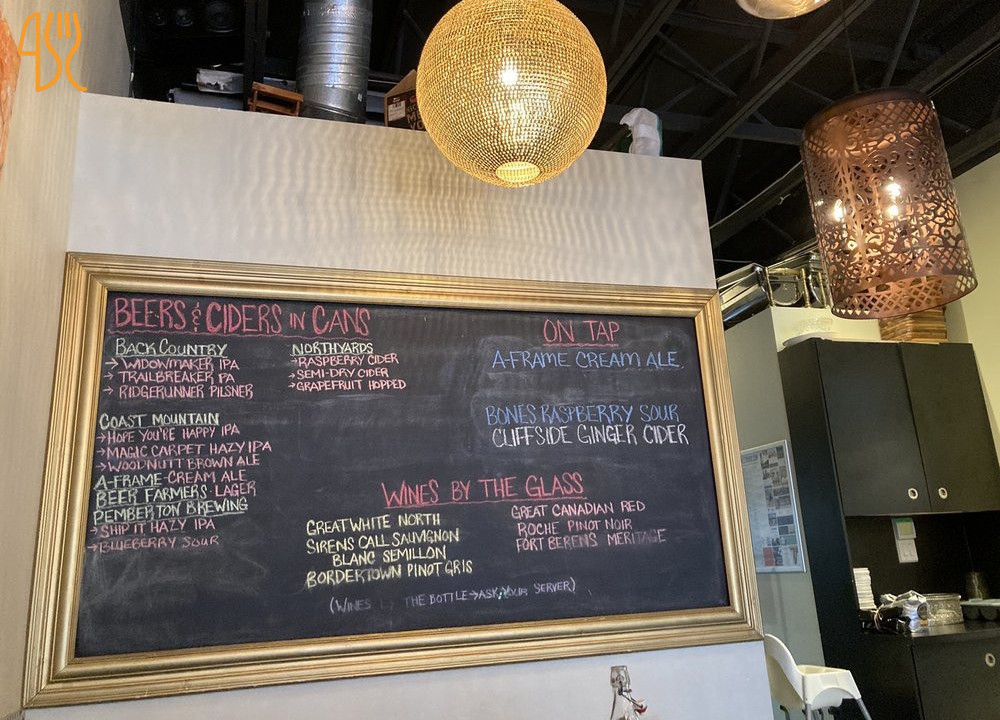 BEERS & CIDERS IN CANS
BACKCOUNTRY
→ WIDOWMAKER IPA
→ TRAILBREAKER PA
→ RIDGERUNNER PILSNER
COAST MOUNTAIN
→ HOPE YOU'RE HAPPY IPA
→ MAGIC CARPET HAZY IPA
→ WOODNUTT BROWN ALE
A-FRAME-CREAM ALE
BEER FARMERS-LAGER
PEMBERTON BREWING
→ SHIP IT HAZY IPA
→ BLUEBERRY SOUR
NORTHYARDS
→ RASPBERRY CIDER
→ SEMI-DRY CIDER
→ GRAPEFRUIT HOPPED
ON TAP
A-FRAME CREAM ALE
BONES RASPBERRY SOUR
CLIFFSIDE GINGER CIDER
WINES BY THE GLASS
GREAT WHITE NORTH
SIRENS CALL SAUVIGNON
BLANC SEMILLON
BORDERTOWN PINOT GRIS
GREAT CANADIAN RED
ROCHE PINOT NOIR
FORT BERENS MERITAGE
(WINES THE BOTTLE → ASK YOUR SERVER)